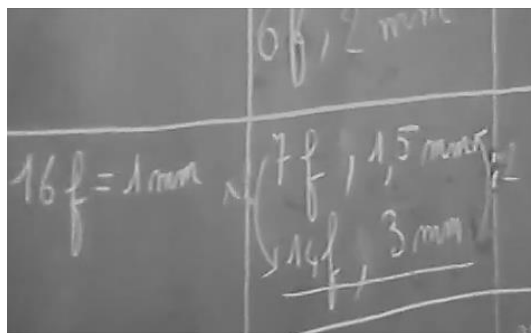 6f, 2 mm
16f = 1mm
7f, 1,5 mm
14f, 3 mm